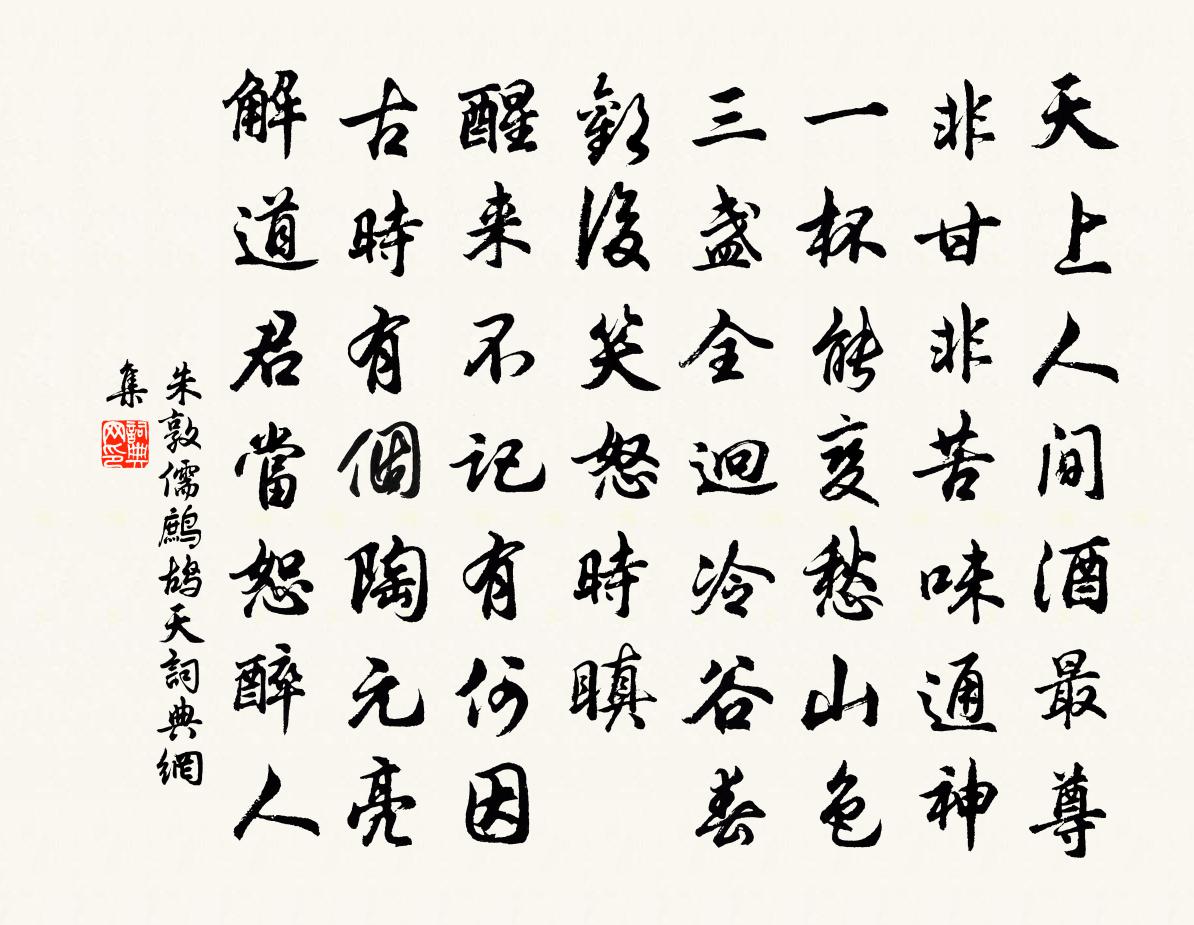 天上人間酒最尊
非甘非苦味通神
一杯能變愁山色
三盞全迴冷谷春
歡後笑怒時瞋
醒来不記有何因
古時有個陶元亮
解道君當恕醉人
朱敦儒鷓鴣天詞典網
集
詞典
网印